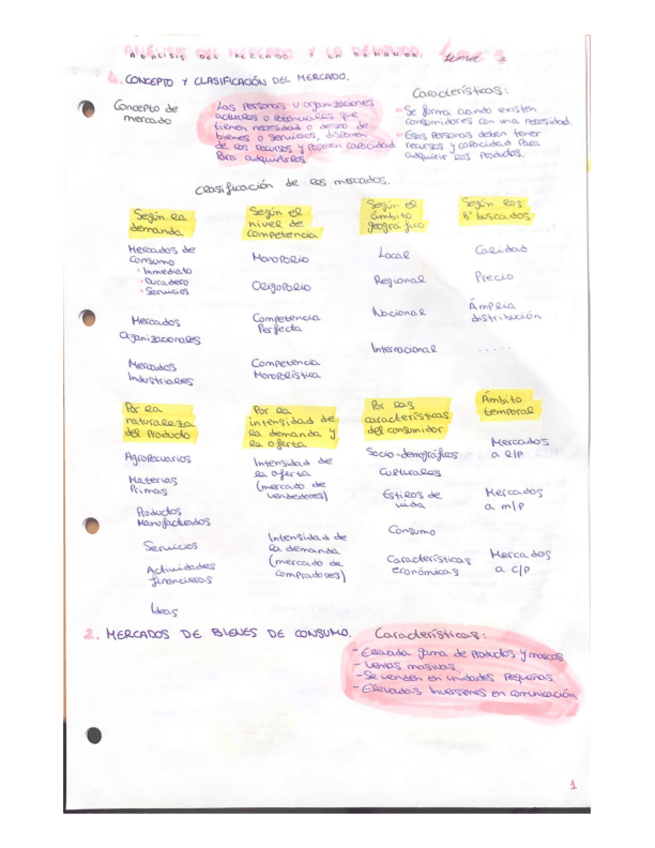 ANÁLISIS DEL MERCADO Y LA DEMANDA. tema 3
1. CONCEPTO Y CLASIFICACIÓN DEL MERCADO.
Concepto de
mercado
Las personas u organizaciones
actuales o potenciales que
tienen necesidad o deseo de
bienes o servicios, disponen
de los recursos y poseen capacidad
para adquirirlos
Características:
- Se forma cuando existen
consumidores con una necesidad.
- Esas personas deben tener
recursos y capacidad para
adquirir los productos.
Clasificación de los mercados.
Según la
demanda
Mercados de
Consumo
· Inmediato
· Duradero
· Servicios
Mercados
Organizacionales
Mercados
Industriales
Según el
nivel de
competencia
Monopolio
Oligopolio
Competencia
Perfecta
Competencia
Monopolística
Según el
ámbito
geográfico
Local
Regional
Nacional
Internacional
Según los
Bº buscados
Calidad
Precio
Ámplia
distribución
.....
Por la
naturaleza
del Producto
Agropecuarios
Materias
Primas
Productos
Manufacturados
Servicios
Actividades
financieras
Ideas
Por la
intensidad de
la demanda y
la oferta
Intensidad de
la oferta
(mercado de
vendedores)
Intensidad de
la demanda
(mercado de
compradores)
Por las
características
del consumidor
Socio-demográficos
Culturales
Estilos de
vida
Consumo
Características
económicas
Ámbito
temporal
Mercados
a l/p
Mercados
a m/p
Mercados
a c/p
2. MERCADOS DE BIENES DE CONSUMO.
Características:
- Elevada gama de productos y marcas
- Ventas masivas.
- Se venden en unidades pequeñas
- Elevadas inversiones en comunicación.
1